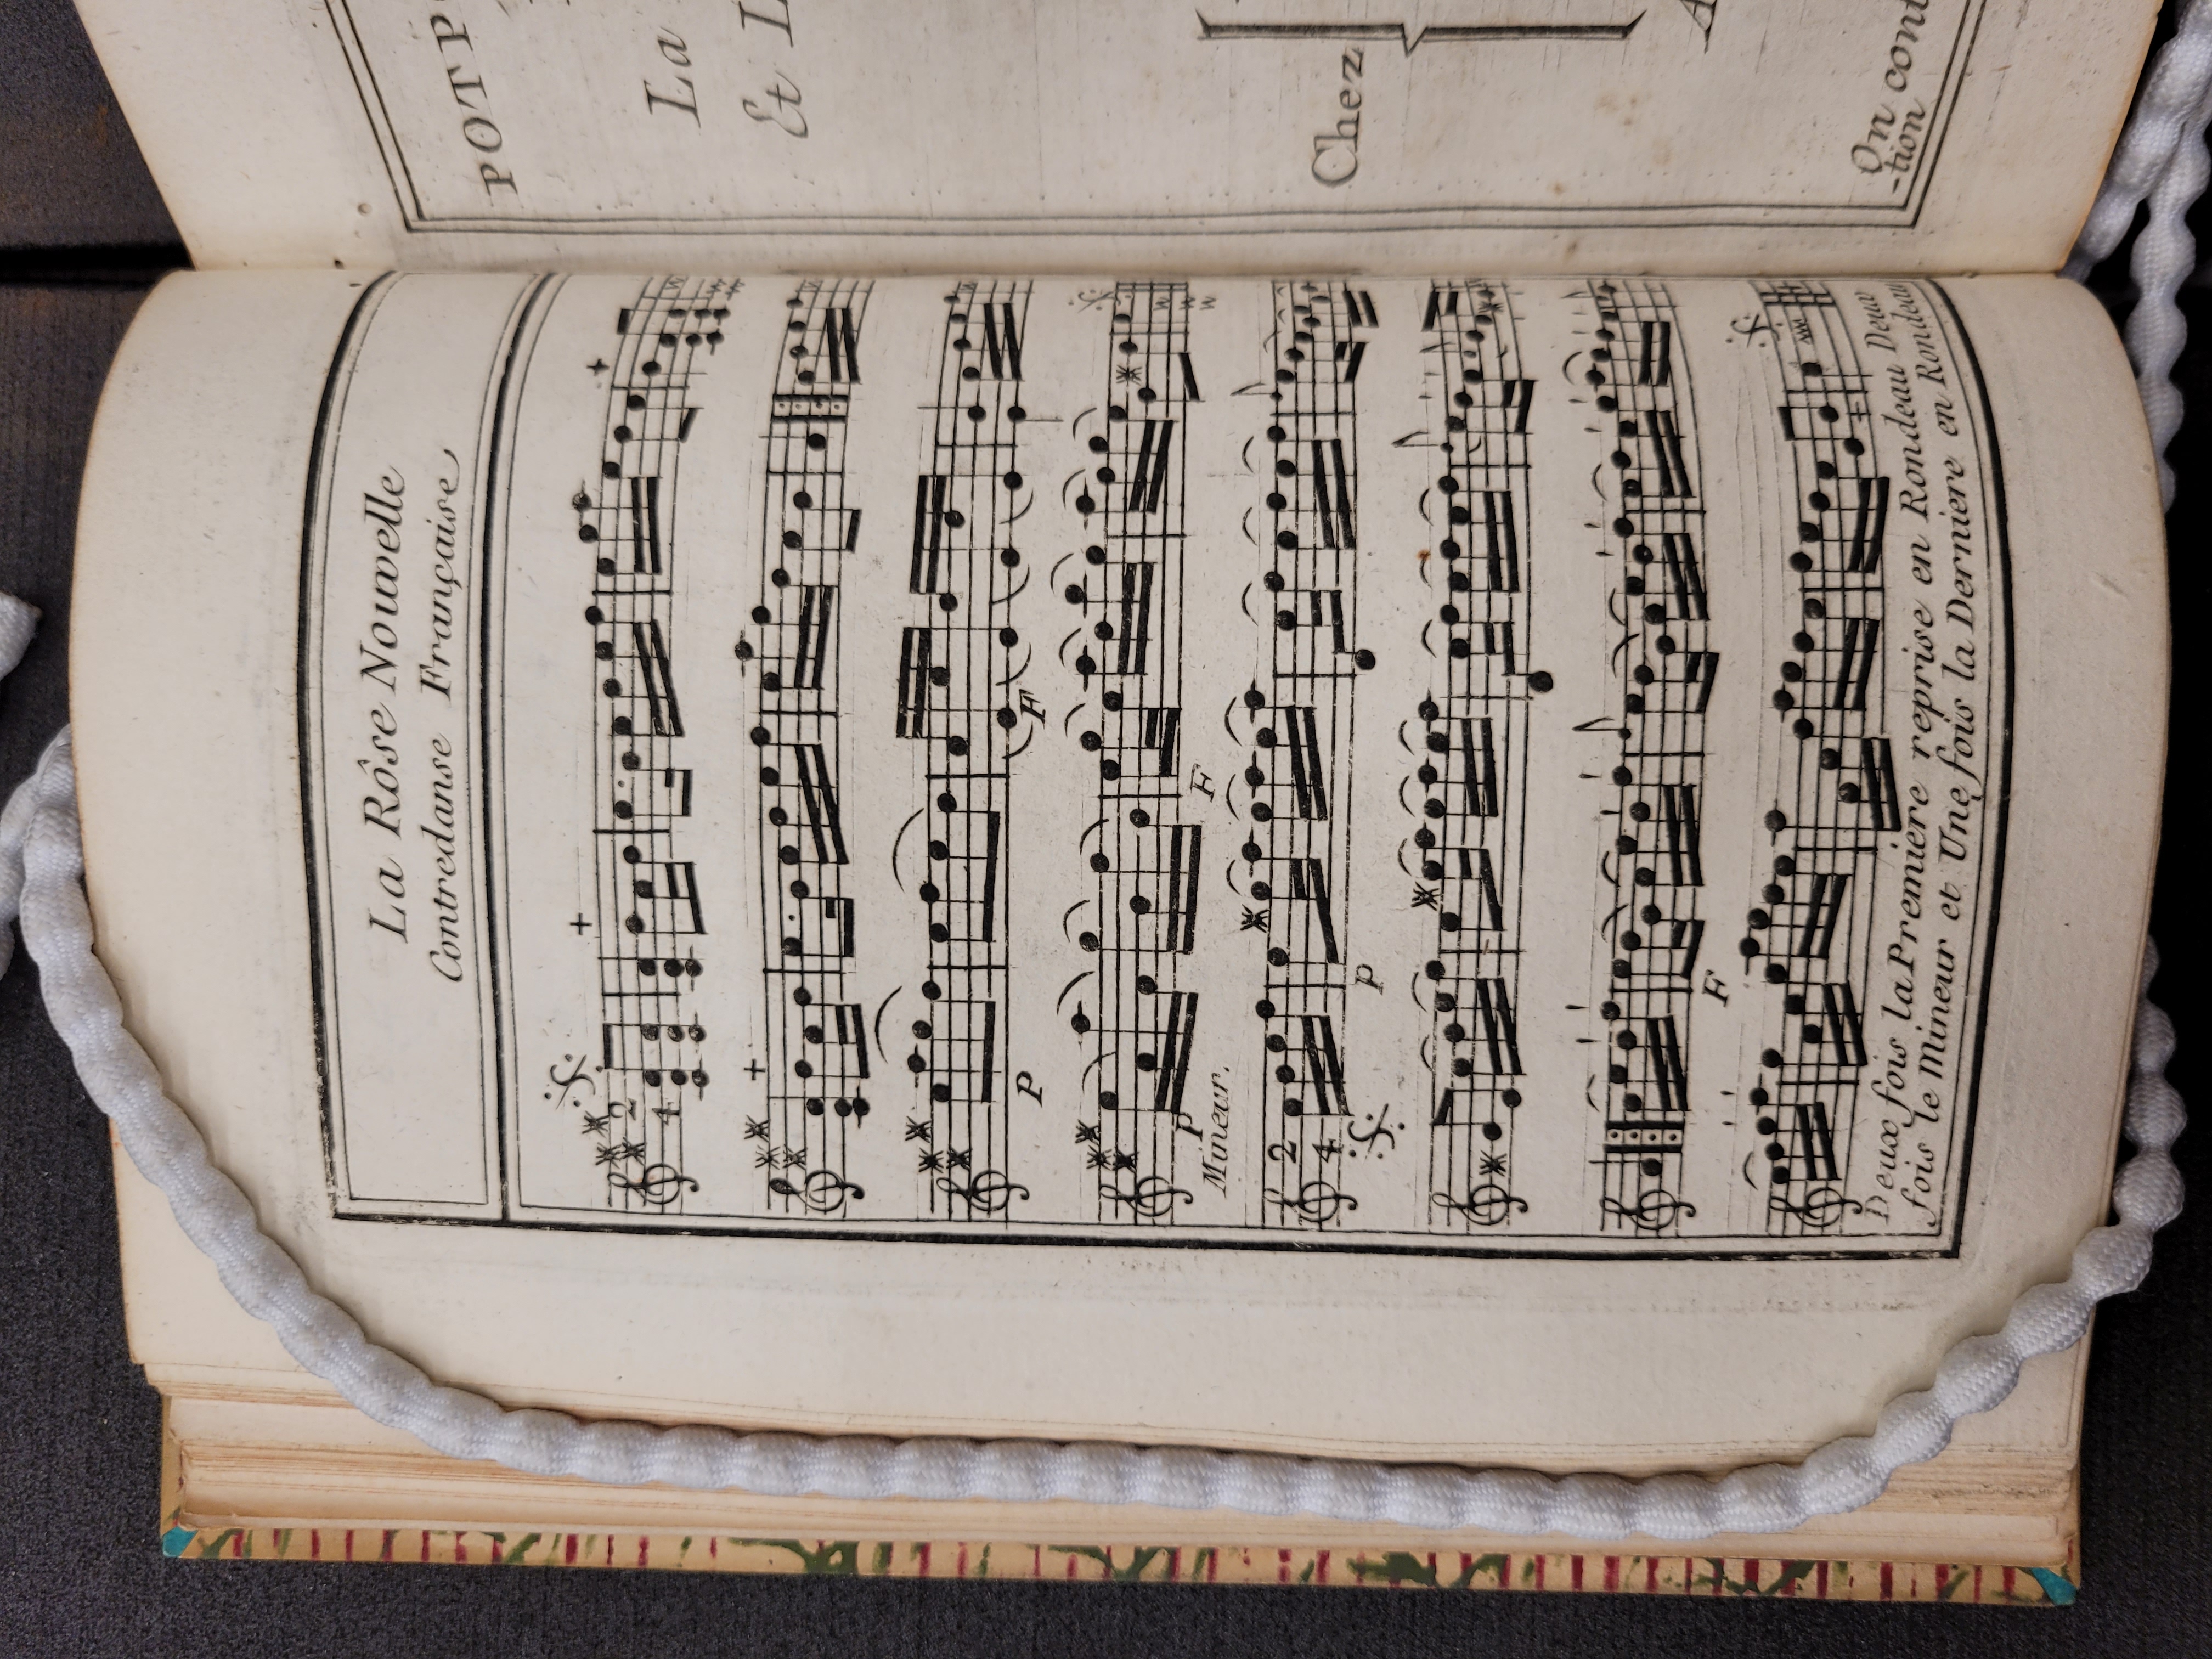 La Rôse Nouvelle
Contredanse Française
2
4
P
F
P
F
Mineur.
2
4
P
F
Deux fois la Premiere reprise en Rondeau Deux
fois le Mineur et Une fois la Derniere en Rondeau
POTP
La
Et L
Chez
A
On cont
-tion